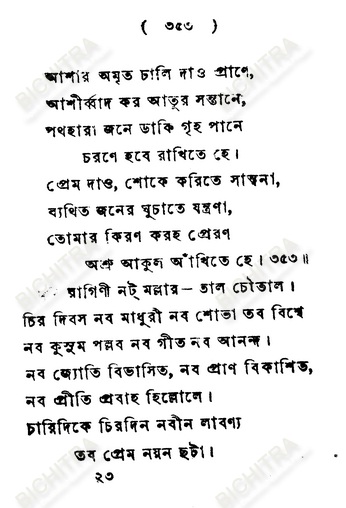 ( ৩৫৩ )
আশার অমৃত ঢালি দাও প্রাণে,
আশীর্ব্বাদ কর আতুর সন্তানে,
পথহারা জনে ডাকি গৃহ পানে
চরণে হবে রাখিতে হে।
প্রেম দাও, শোকে করিতে সান্ত্বনা,
ব্যথিত জনের ঘুচাতে যন্ত্রণা,
তোমার কিরণ করহ প্রেরণ
অশ্রু আকুল আঁখিতে হে। ৩৫৩॥
রাগিণী নট্ মল্লার – তাল চৌতাল।
চির দিবস নব মাধুরী নব শোভা তব বিশ্বে
নব কুসুম পল্লব নব গীত নব আনন্দ।
নব জ্যোতি বিভাসিত, নব প্রাণ বিকাশিত,
নব প্রীতি প্রবাহ হিল্লোলে।
চারিদিকে চিরদিন নবীন লাবণ্য
তব প্রেম নয়ন ছটা।
২৩
BICHITRA
BICHITRA
BICHITRA
BICHITRA
BICHITRA
BICHITRA